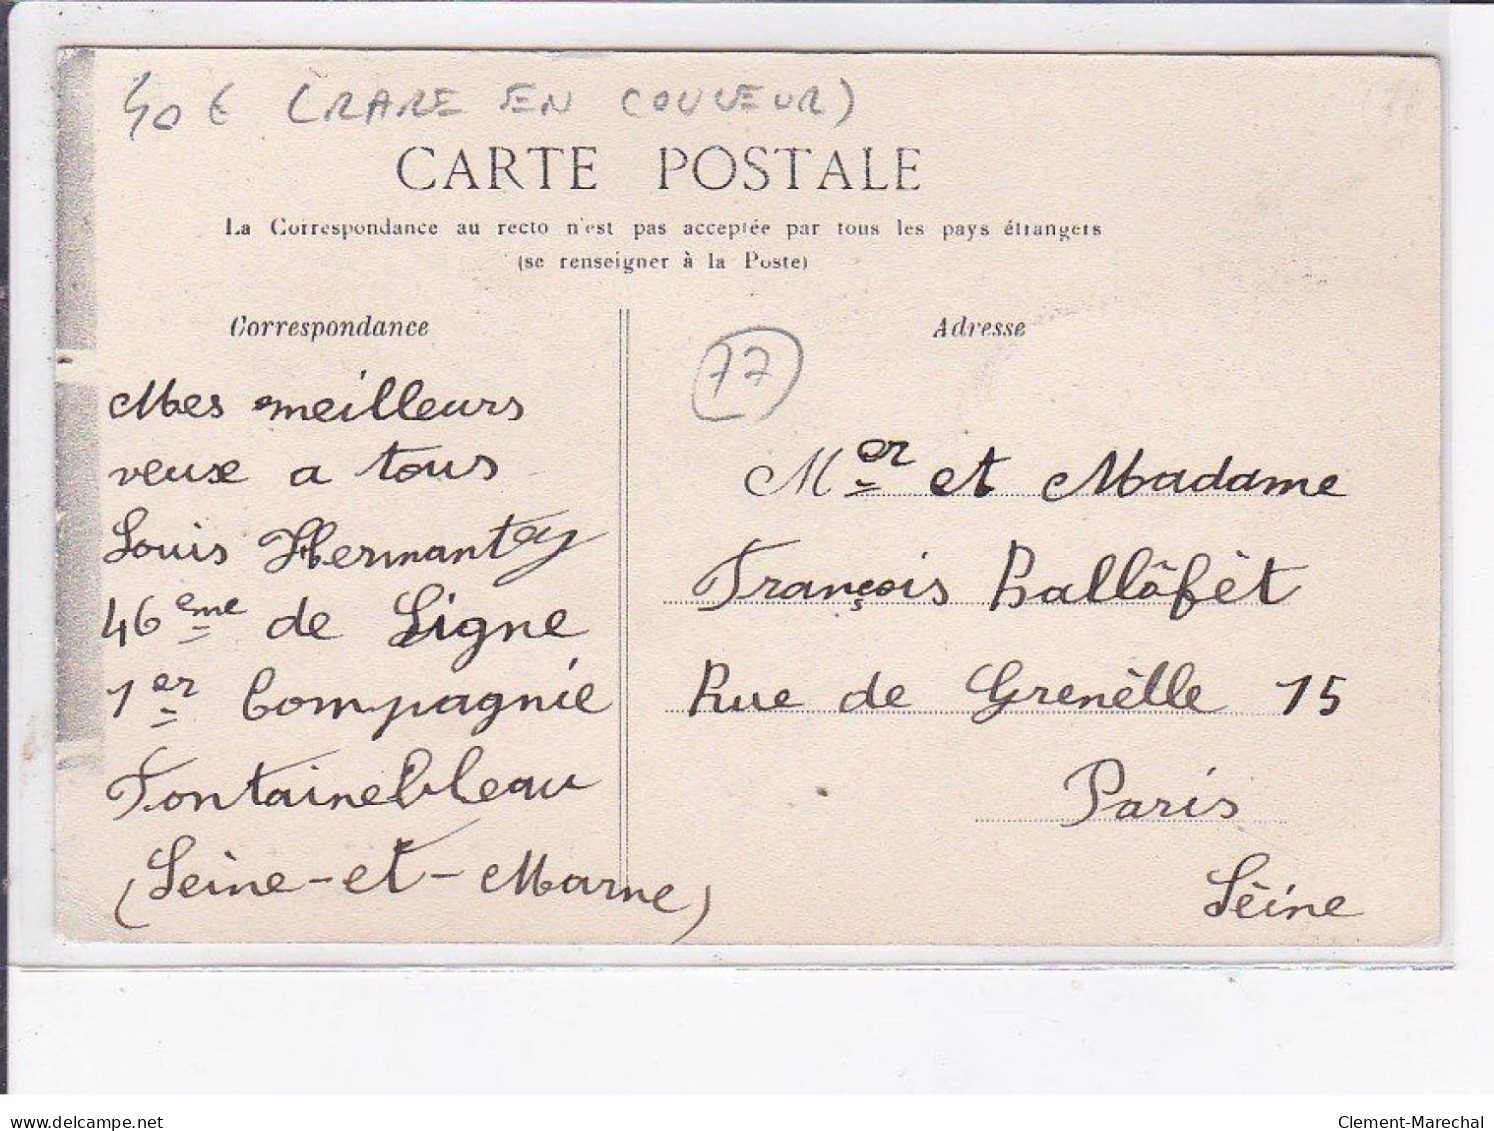 40 € (RARE EN COULEUR)
CARTE POSTALE
La Correspondance au recto n'est pas acceptée par tous les pays étrangers
(se renseigner à la Poste)
Correspondance
Mes meilleurs
veux a tous
Louis Hermantey
46 eme de Ligne
1er Compagnie
Fontainebleau
(Seine-et-Marne)
Adresse
77
Mer et Madame
François Ballôfêt
Rue de Grenêlle 15
Paris
Sêine
www.delcampe.net
Clement-Marechal